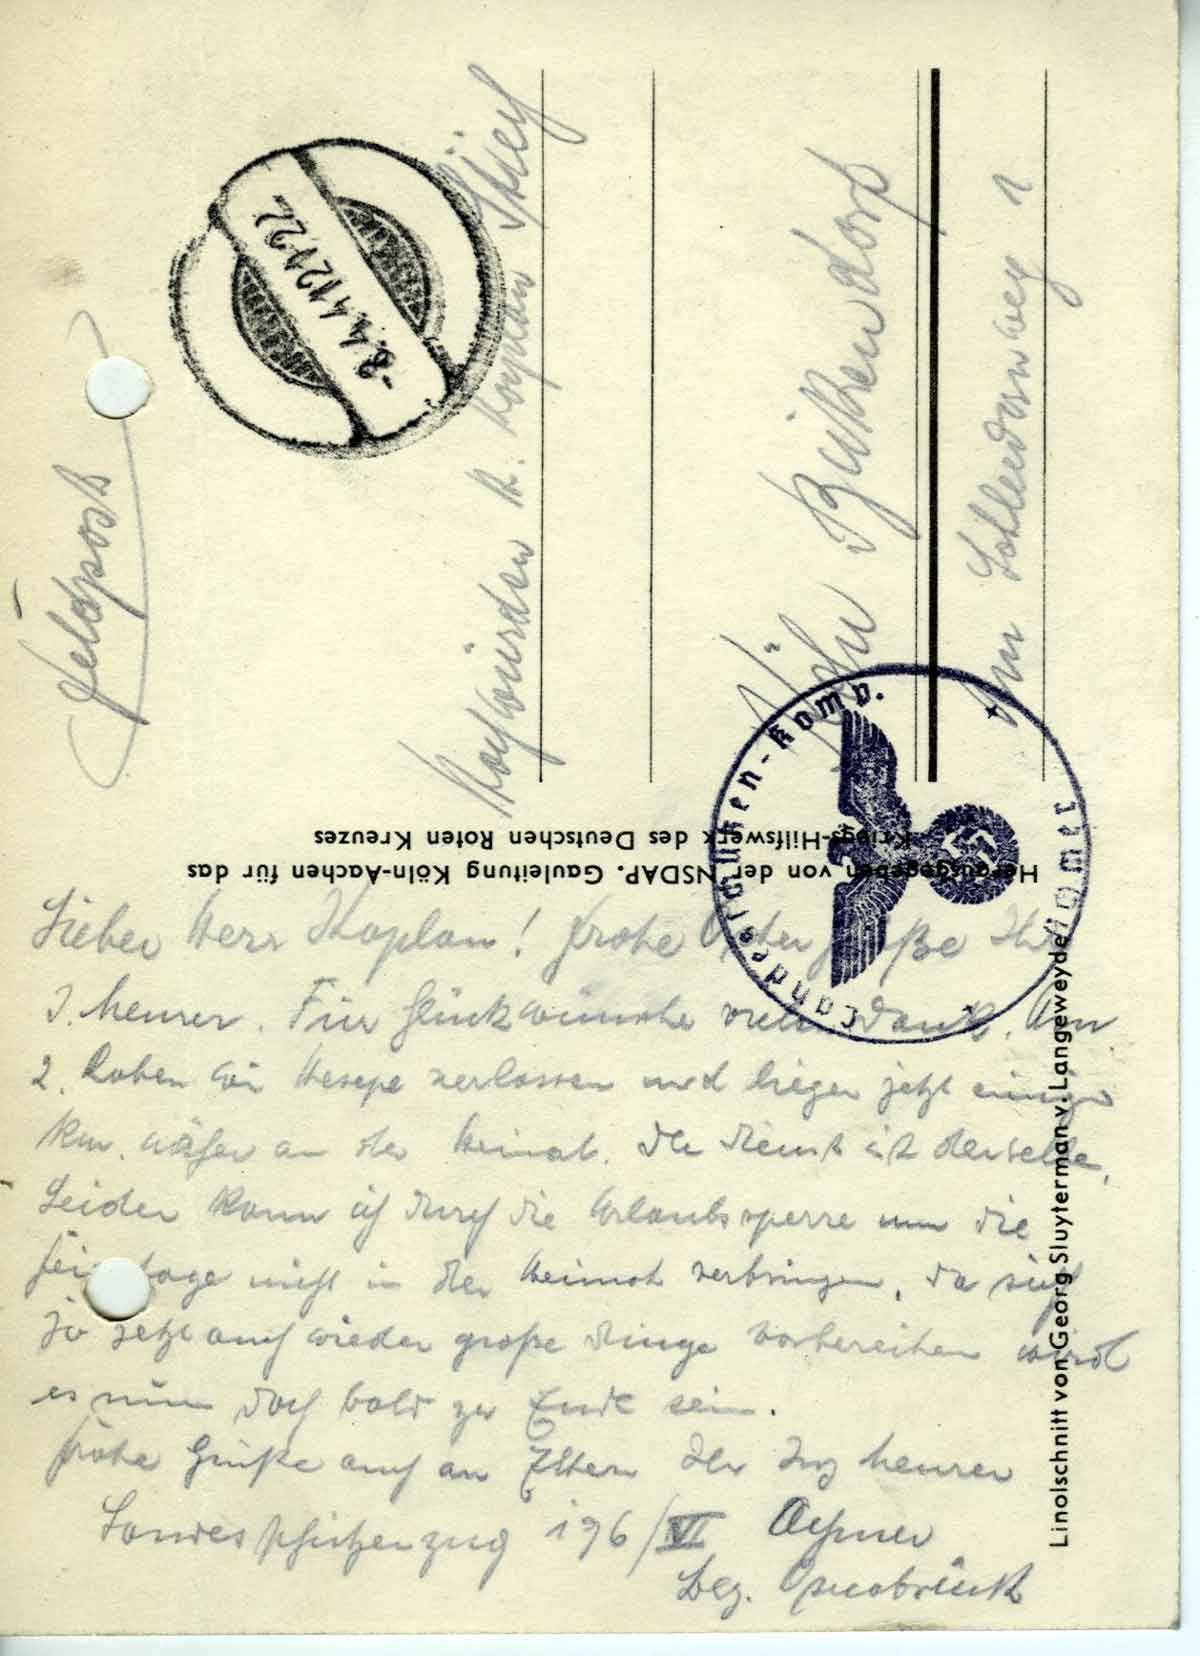 Feldpost
-8.4.41 21-22
Hochwürden H. H. Kaplan Stief
Köln Buißendorf
Am Schlendorweg 1
Landesschützen-Komp.
Herausgegeben von der NSDAP. Gauleitung Köln-Aachen für das
Kriegs-Hilfswerk des Deutschen Roten Kreuzes
Lieber Herr Kaplan! Frohe Oster grüße Ihr
J. Meurer. Für Glückwünsche vielen Dank. Am
2. haben wir Hesepe verlassen und liegen jetzt einige
km. näher an der Heimat. Der Dienst ist derselbe.
Leider kann ich durch die Urlaubssperre nun die
Feiertage nicht in der Heimat verbringen. Da sich
ja jetzt auch wieder große Dinge vorbereiten wird
es nun doch bald zu Ende sein.
Frohe Grüße auch an Eltern Ihr Jos Meurer
Landesschützenzug 196/VI
Bez. Osnabrück
Linolschnitt von Georg Sluyterman v. Langeweyde